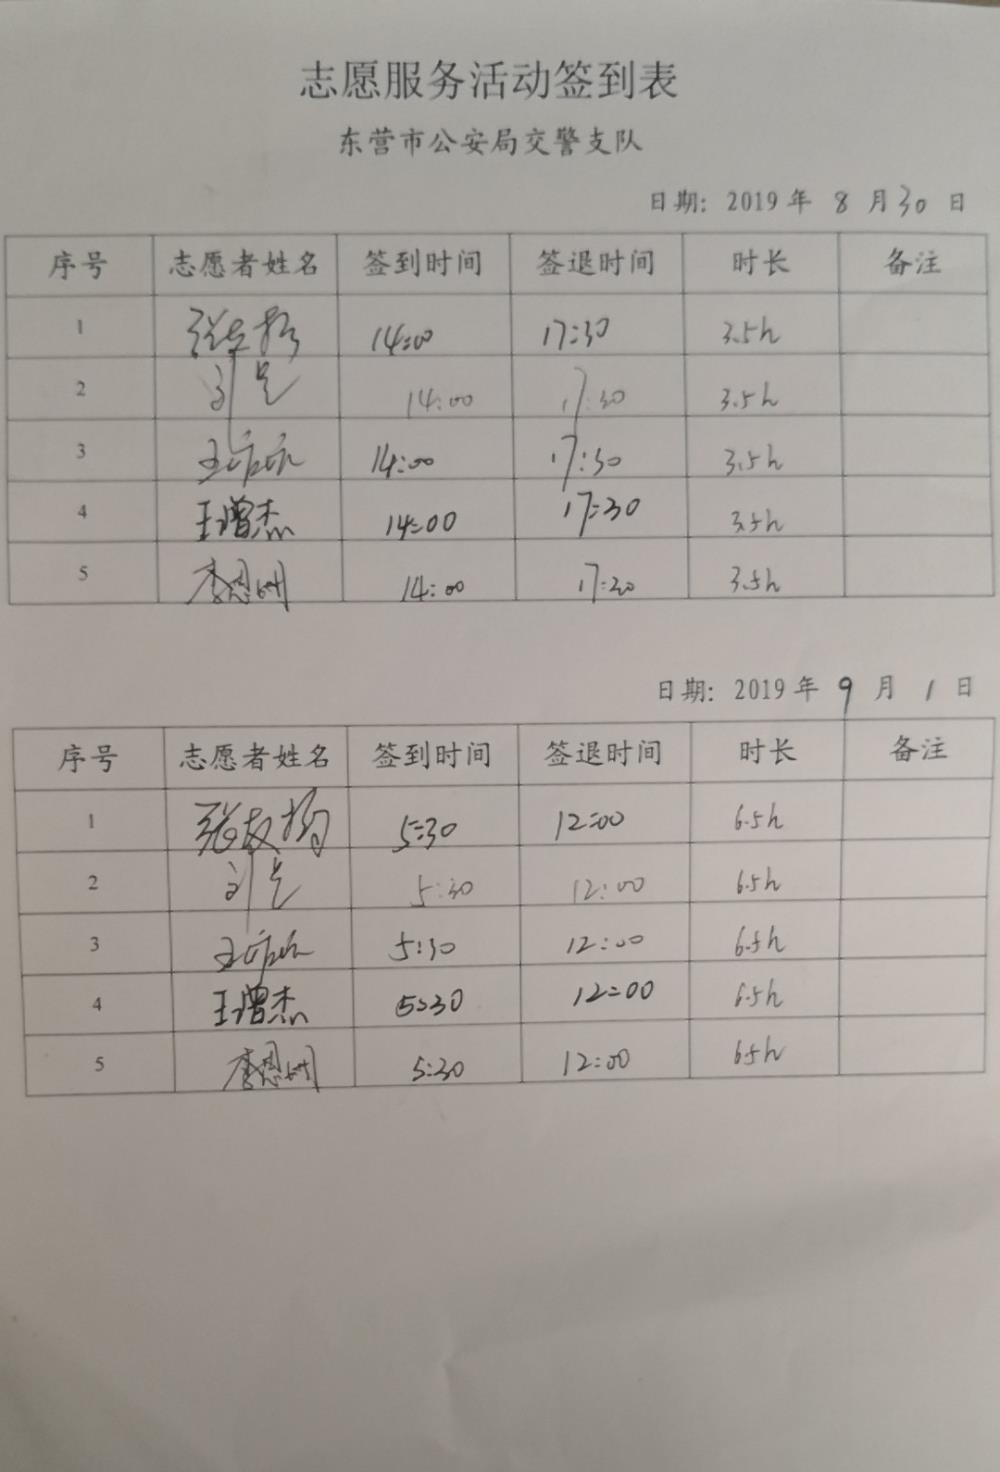 志愿服务活动签到表
东营市公安局交警支队
日期: 2019 年 8 月 30 日
序号 志愿者姓名 签到时间 签退时间 时长 备注
1 14:00 17:30 3.5h
2 14:00 17:30 3.5h
3 14:00 17:30 3.5h
4 王增杰 14:00 17:30 3.5h
5 李恩明 14:00 17:30 3.5h
日期: 2019 年 9 月 1 日
序号 志愿者姓名 签到时间 签退时间 时长 备注
1 5:30 12:00 6.5h
2 5:30 12:00 6.5h
3 5:30 12:00 6.5h
4 王增杰 5:30 12:00 6.5h
5 李恩明 5:30 12:00 6.5h